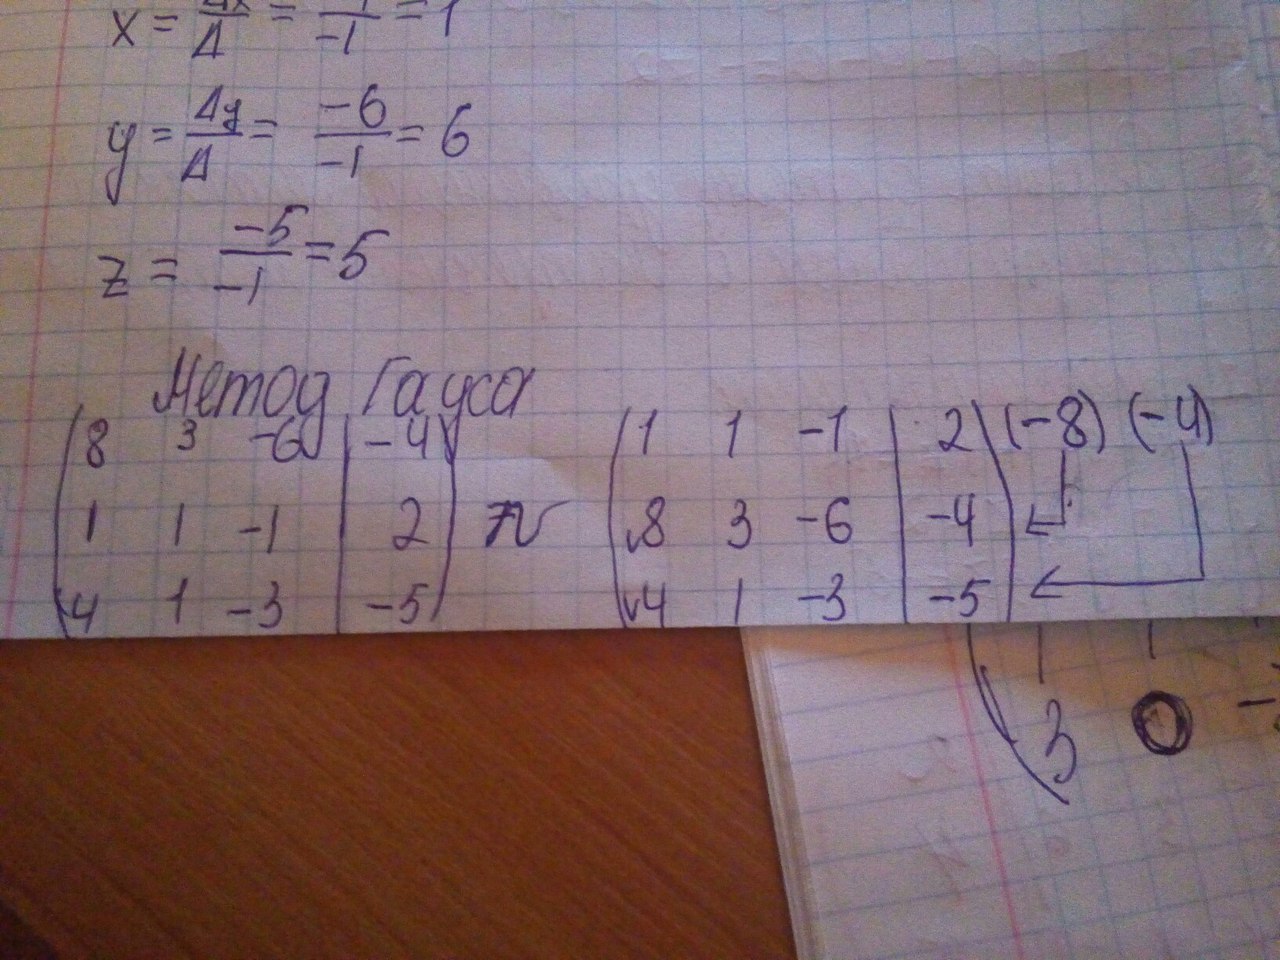 x = Δx/Δ = -1/-1 = 1
y = Δy/Δ = -6/-1 = 6
z = -5/-1 = 5
Метод Гауса
( 8 3 -6 | -4 ) ~ ( 1 1 -1 | 2 ) (-8) (-4)
( 1 1 -1 | 2 ) ( 8 3 -6 | -4 ) ←
( 4 1 -3 | -5 ) ( 4 1 -3 | -5 ) ←
1 1
3 0 -